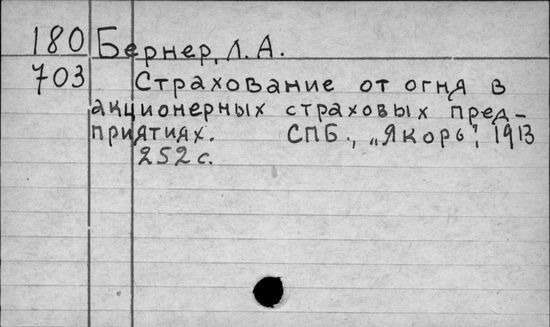 180 Бернер, Л. А.
703 Страхование от огня в
акционерных страховых пред-
приятиях. СПБ., „Якорь", 1913
252 с.